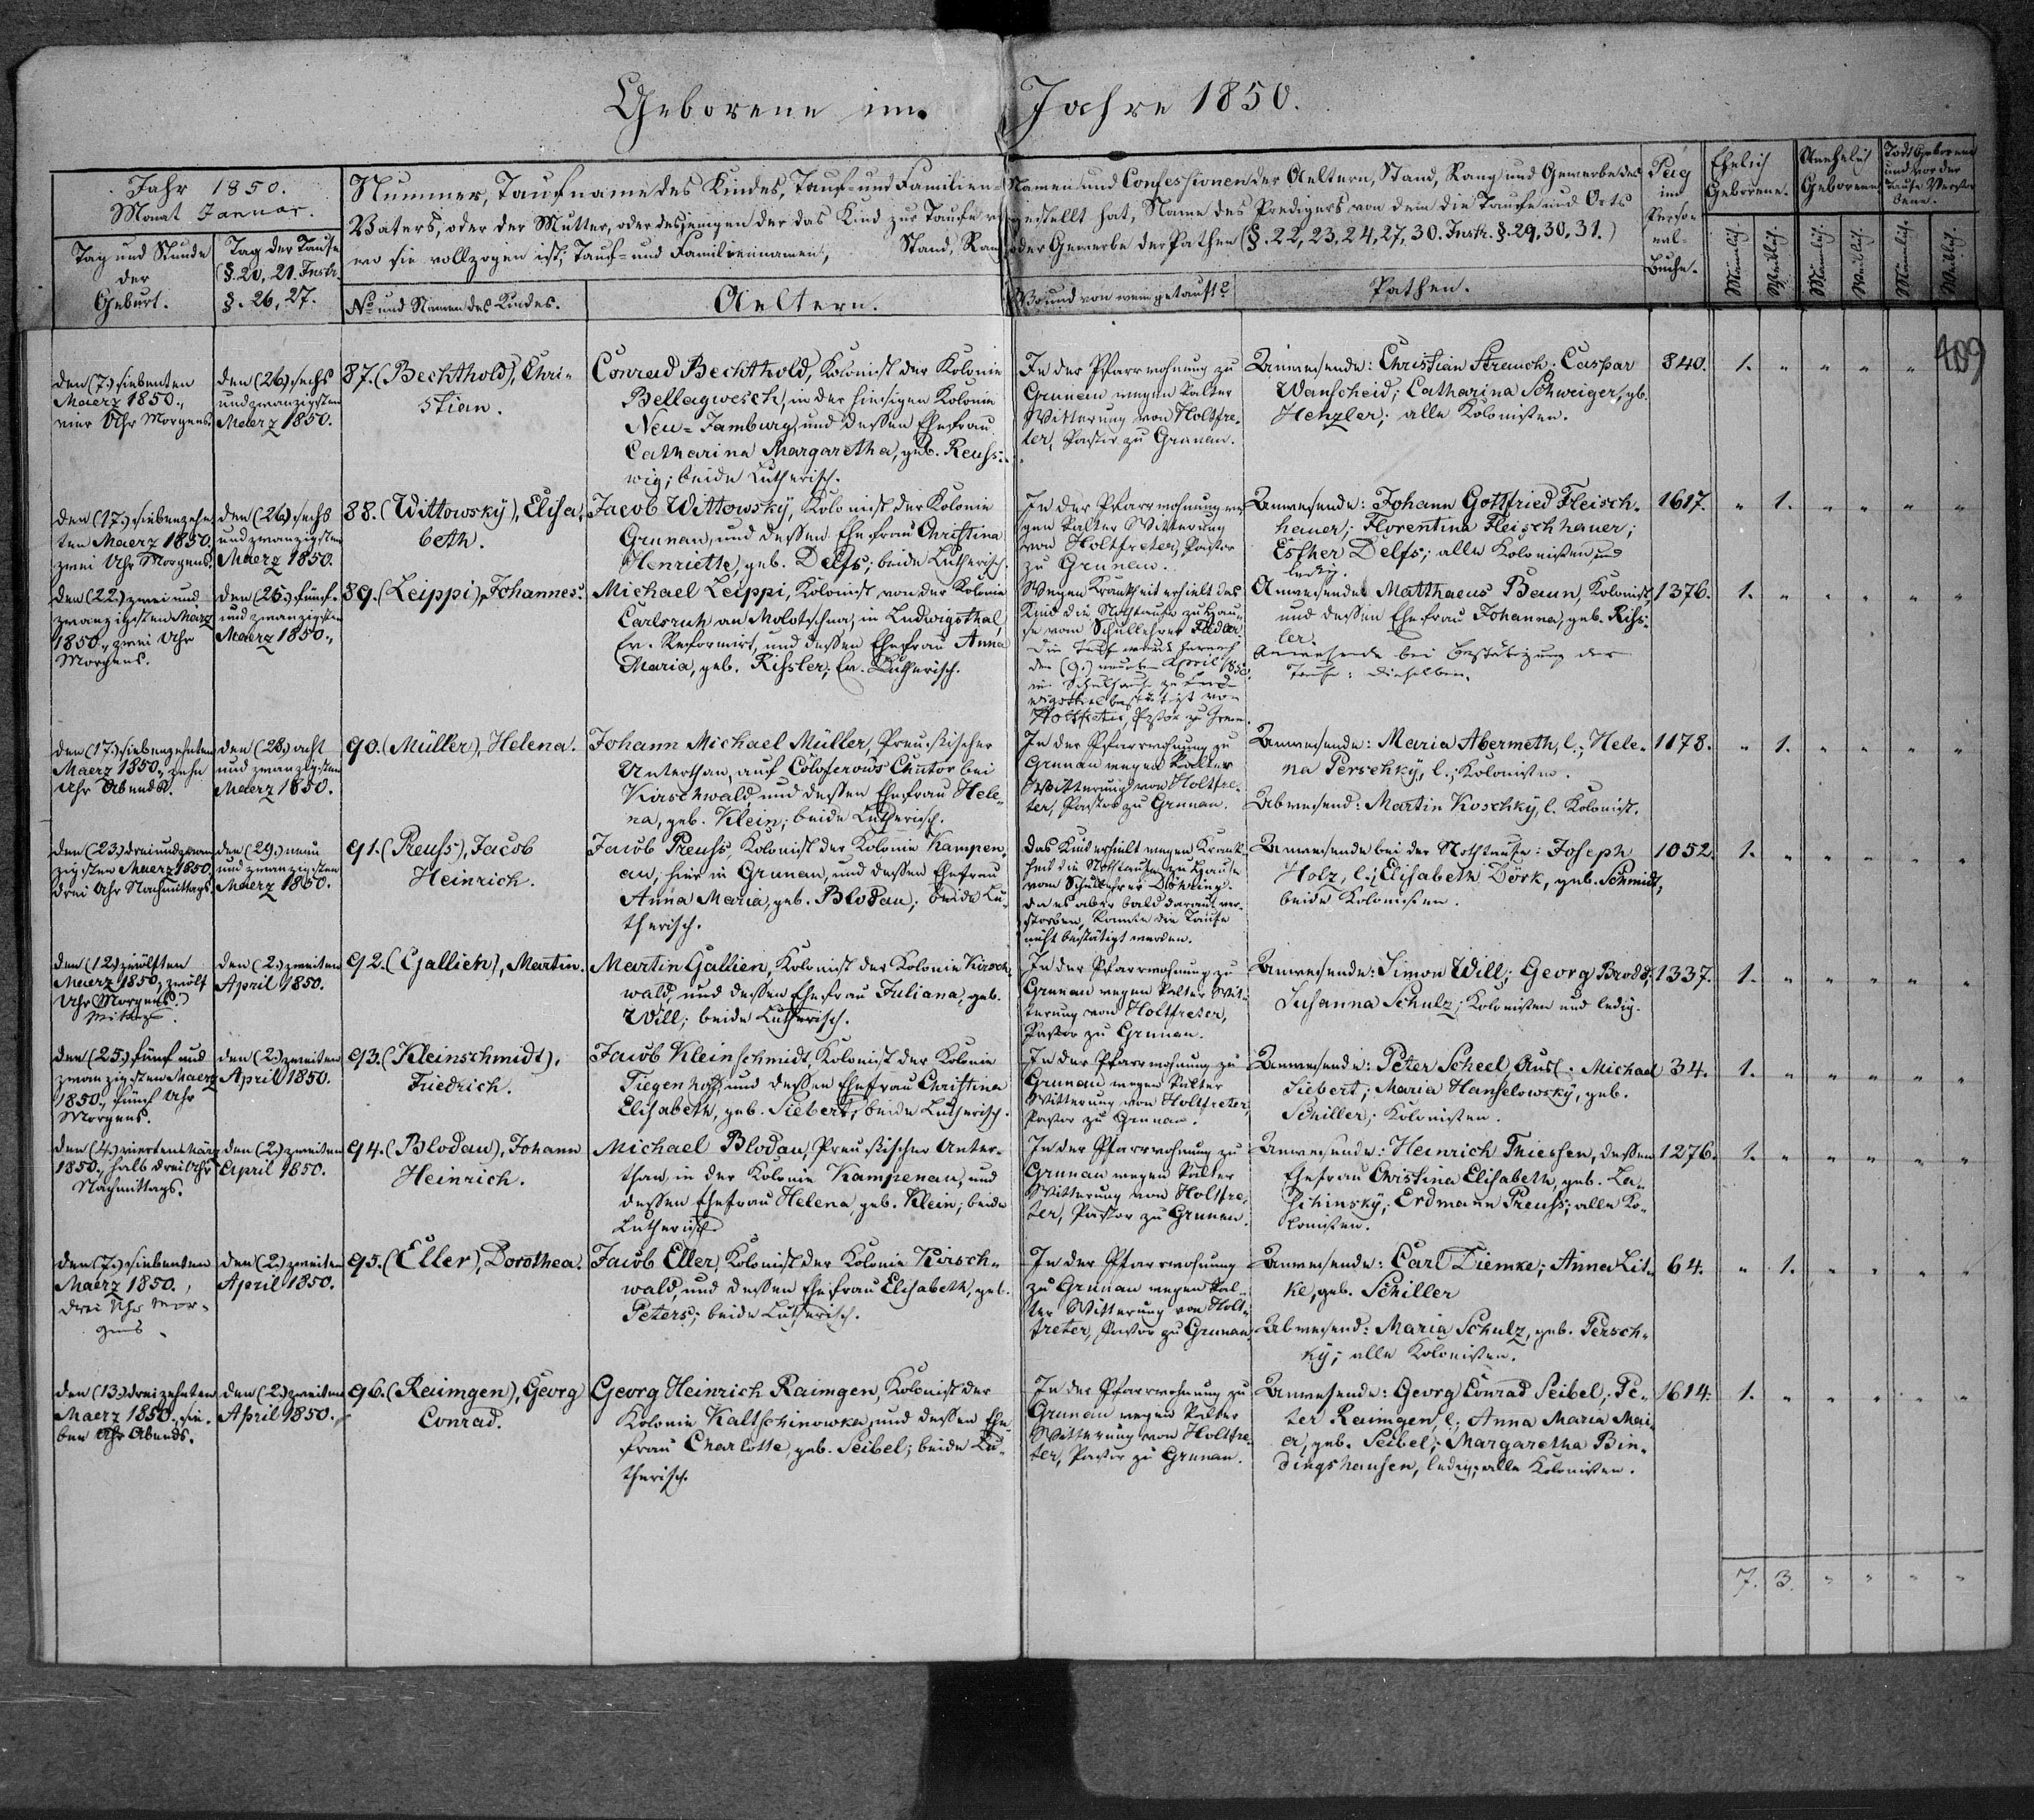 Geborene im Jahre 1850.
Jahr 1850.
Monat Januar.
Tag und Stunde
der
Geburt.
Tag der Taufe
(§. 20, 21. Instr.
§. 26, 27.
Nummer, Taufname des Kindes, Tauf- und Familien-
Vaters, oder der Mutter, oder desjenigen der das Kind zur Taufe
wo sie vollzogen ist; Tauf- und Familiennamen, Stand, Rang
No und Namen des Kindes.
Aeltern.
Namen und Confessionen der Aeltern, Stand, Rang und Gewerbe des
gestellt hat, Name des Predigers von dem die Taufe und Orts
oder Gewerbe der Pathen (§. 22, 23, 24, 27, 30. Instr. §. 29, 30, 31.)
Wo und von wem getauft?
Pathen.
Pag
im
Perso-
nal-
Buche.
Ehelich
Geborene.
Unehelich
Geborene
Todt Geborene
und vor der
Taufe Verstor
bene.
Männlich.
Weiblich.
Männlich.
Weiblich.
Männlich.
Weiblich.
409
den (7.) siebenten
Maerz 1850.,
vier Uhr Morgens.
den (26.) sechs
und zwanzigsten
Maerz 1850.
87. (Bechthold), Chri-
stian.
Conrad Bechthold, Kolonist der Kolonie
Bellagwesch, in der hiesigen Kolonie
Neu-Jamburg, und dessen Ehefrau
Catharina Margaretha, geb. Reuss-
wig; beide Lutherisch.
In der Pfarrwohnung zu
Grunau wegen kalter
Witterung von Holtfre-
ter, Pastor zu Grunau.
Anwesende: Christian Strauch; Caspar
Wanscheid; Catharina Schweiger, gb.
Henzler; alle Kolonisten.
840. 1. " " " "
den (17.) siebenzehn
ten Maerz 1850.
zwei Uhr Morgens.
den (26.) sechs
und zwanzigsten
Maerz 1850.
88. (Wittowsky), Elisa-
beth.
Jacob Wittowsky, Kolonist der Kolonie
Grunau, und dessen Ehefrau Christina
Henriette, geb. Delfs; beide Lutherisch.
In der Pfarrwohnung we
gen kalter Witterung
von Holtfreter, Pastor
zu Grunau.
Anwesende: Johann Gottfried Fleisch-
hauer; Florentina Fleischhauer;
Esther Delfs; alle Kolonisten und
ledig.
1617. " 1. " " " "
den (22.) zwei und
zwanzigsten März
1850., zwei Uhr
Morgens.
den (25.) fünf-
und zwanzigsten
Maerz 1850.,
89. (Leippi), Johannes.
Michael Leippi, Kolonist von der Kolonie
Carlsruh an Molotschna, in Ludwigsthal,
Ev. Reformirt, und dessen Ehefrau Anna
Maria, geb. Rissler; Ev. Lutherisch.
Wegen Krankheit erhielt das
Kind die Nothtaufe zu Hau-
se vom Schullehrer Fiedler.
Die Taufe wurde hernach
den (9.) neunten April 1850.
im Schulhause zu Lud-
wigsthal bestätigt von
Holtfreter, Pastor zu Grun.
Anwesende: Matthaeus Beun, Kolonist,
und dessen Ehefrau Johanna, geb. Riss-
ler.
Anwesende bei Bestätigung der
Taufe: dieselben.
1376. 1. " " " " "
den (17.) siebenzehnten
Maerz 1850., zehn
Uhr Abends.
den (28.) acht
und zwanzigsten
Maerz 1850.
90. (Müller), Helena.
Johann Michael Müller, Preussischer
Unterthan, auf Coloserow's Chutor bei
Kirschwald, und dessen Ehefrau Hele-
na, geb. Klein; beide Lutherisch.
In der Pfarrwohnung zu
Grunau wegen kalter
Witterung von Holtfre-
ter, Pastor zu Grunau.
Anwesende: Maria Abermeth, l.; Hele-
na Perschky, l.; Kolonisten.
Abwesend: Martin Koschky, l. Kolonist.
1178. " 1. " " " "
den (23.) drei und zwan-
zigsten Maerz 1850.
drei Uhr Nachmittags.
den (29.) neun
und zwanzigsten
Maerz 1850.
91. (Preuss), Jacob
Heinrich.
Jacob Preuss, Kolonist der Kolonie Kampen-
au, hier in Grunau, und dessen Ehefrau
Anna Maria, geb. Blodau; beide Lu-
therisch.
Das Kind erhielt wegen Krank-
heit die Nothtaufe zu Hause
vom Schullehrer Döhring.
Da es aber bald darauf ver-
storben, konnte die Taufe
nicht bestätigt werden.
Anwesende bei der Nothtaufe: Joseph
Holz, l.; Elisabeth Dörk, geb. Schmidt,
beide Kolonisten.
1052. 1. " " " " "
den (12.) zwölften
Maerz 1850., zwölf
Uhr Morgens.
Mittags.
den (2.) zweiten
April 1850.
92. (Gallien), Martin.
Martin Gallien, Kolonist der Kolonie Kirsch-
wald, und dessen Ehefrau Juliana, geb.
Will; beide Lutherisch.
In der Pfarrwohnung zu
Grunau wegen kalter Wit-
terung von Holtfreter,
Pastor zu Grunau.
Anwesende: Simon Will; Georg Brodd;
Susanna Schulz; Kolonisten und ledig.
1337. 1. " " " " "
den (25.) fünf und
zwanzigsten Maerz
1850., fünf Uhr
Morgens.
den (2.) zweiten
April 1850.
93. (Kleinschmidt),
Friedrich.
Jacob Kleinschmidt, Kolonist der Kolonie
Tiegenhoff, und dessen Ehefrau Christina
Elisabeth, geb. Siebert; beide Lutherisch.
In der Pfarrwohnung zu
Grunau wegen kalter
Witterung von Holtfreter,
Pastor zu Grunau.
Anwesende: Peter Scheel, Ausl. Michael
Siebert; Maria Hanselowsky, geb.
Schiller; Kolonisten.
34. 1. " " " " "
den (4.) vierten März
1850., halb drei Uhr
Nachmittags.
den (2.) zweiten
April 1850.
94. (Blodau), Johann
Heinrich.
Michael Blodau, Preussischer Unter-
than, in der Kolonie Kampenau, und
dessen Ehefrau Helena, geb. Klein; beide
Lutherisch.
In der Pfarrwohnung zu
Grunau wegen kalter
Witterung von Holtfre-
ter, Pastor zu Grunau.
Anwesende: Heinrich Thiessen, dessen
Ehefrau Christina Elisabeth, geb. La-
schinsky; Erdmann Preuss; alle Ko-
lonisten.
1276. 1. " " " " "
den (7.) siebenten
Maerz 1850.,
drei Uhr Mor-
gens.
den (2.) zweiten
April 1850.
95. (Eller), Dorothea.
Jacob Eller, Kolonist der Kolonie Kirsch-
wald, und dessen Ehefrau Elisabeth, geb.
Peters; beide Lutherisch.
In der Pfarrwohnung
zu Grunau wegen kal-
ter Witterung von Holt-
freter, Pastor zu Grunau.
Anwesende: Carl Diemke; Anna Lit-
ke, geb. Schiller
Abwesend: Maria Schulz, geb. Persch-
ky; alle Kolonisten.
64. " 1. " " " "
den (13.) dreizehnten
Maerz 1850., sie-
ben Uhr Abends.
den (2.) zweiten
April 1850.
96. (Raimgen), Georg
Conrad.
Georg Heinrich Raimgen, Kolonist der
Kolonie Kaltschinowka, und dessen Ehe
frau Charlotte geb. Seibel; beide Lu-
therisch.
In der Pfarrwohnung zu
Grunau wegen kalter
Witterung von Holtfre-
ter, Pastor zu Grunau.
Anwesende: Georg Conrad Seibel; Pe-
ter Raimgen, l.; Anna Maria Mai-
er, geb. Seibel; Margaretha Bin-
dingshausen, ledig; alle Kolonisten.
1614. 1. " " " " "
7. 3. " " " "